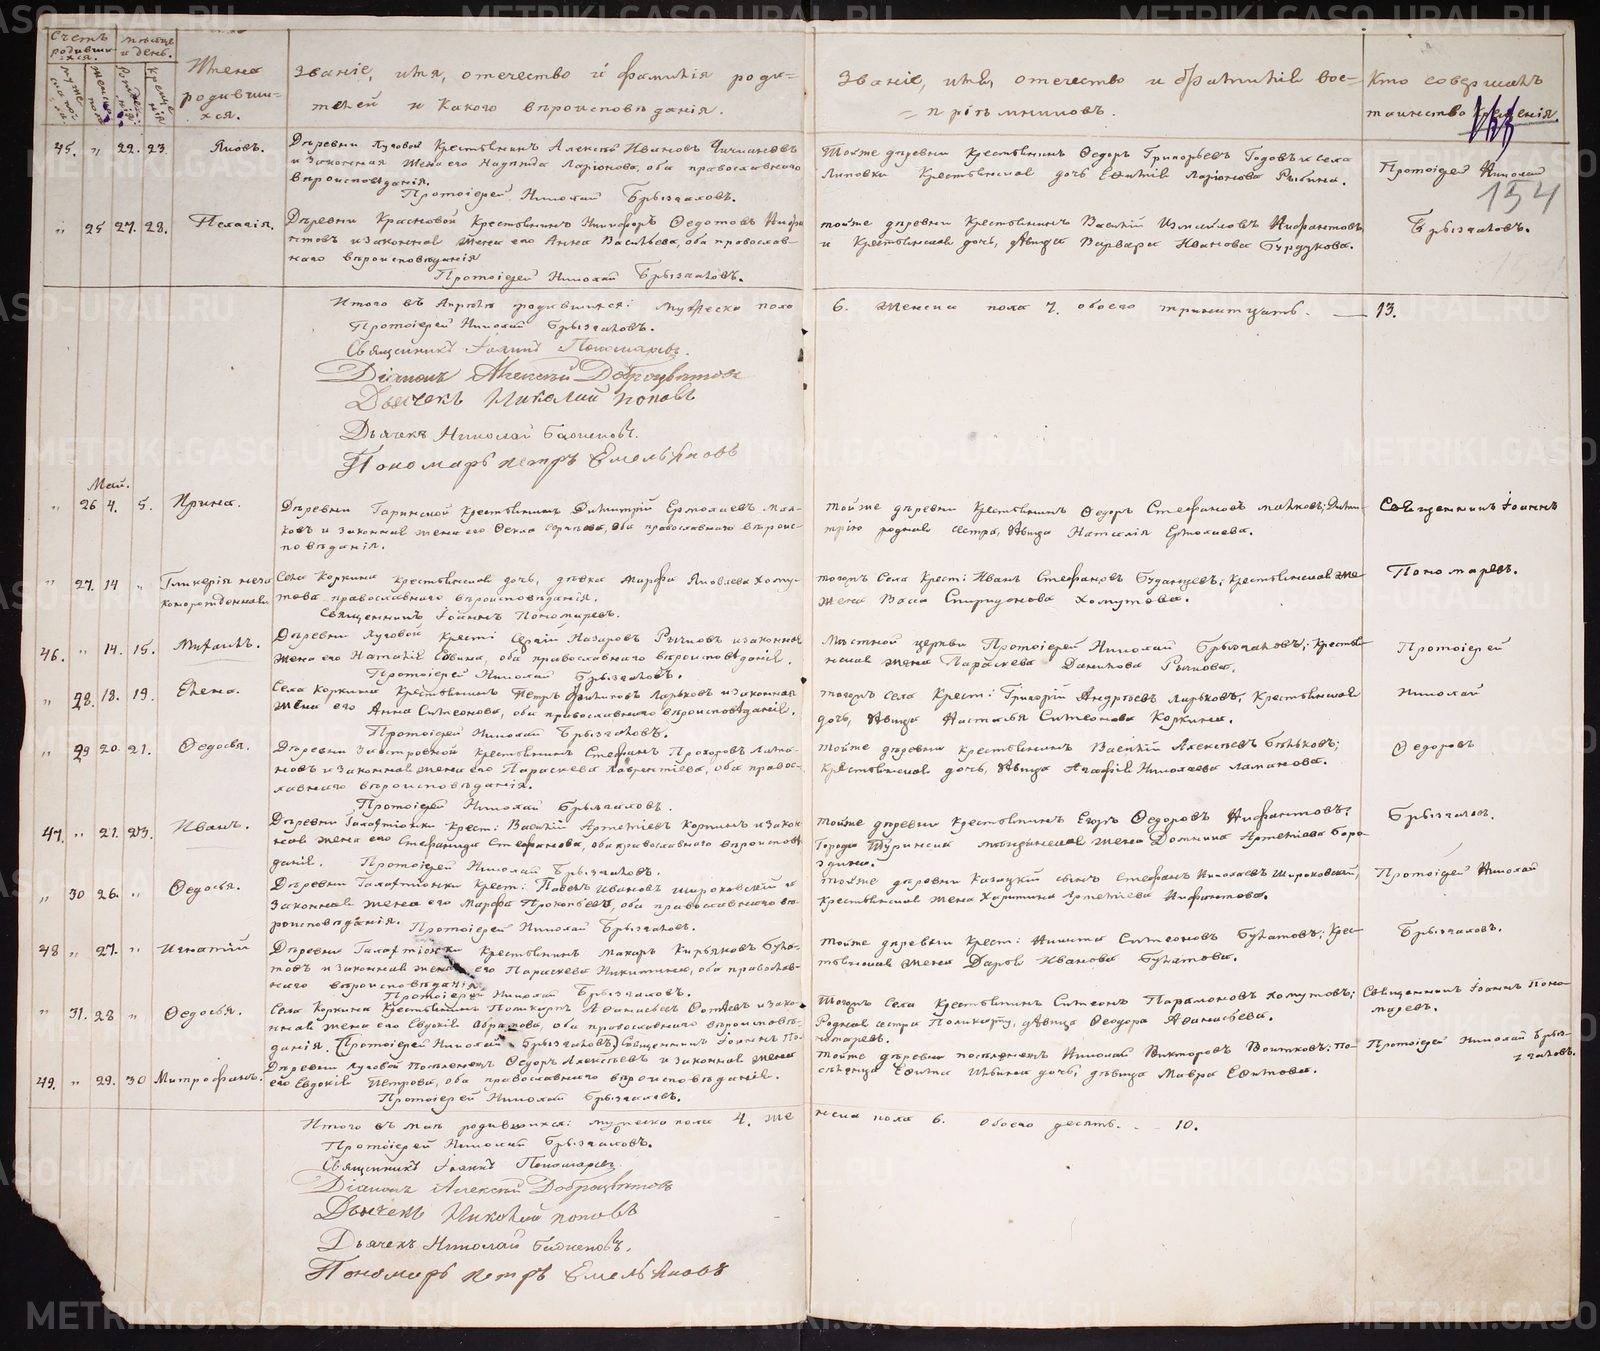 Счетъ родивших-ся.
Мѣсяцъ и день.
Имена родивши-хся.
Званіе, имя, отечество и фамилія роди-
телей и какого вѣроисповѣданія.
Званіе, имя, отечество и фамилія вос-
пріѣмниковъ.
Кто совершалъ
таинство крещенія.
154
45. " 22. 23. Яковъ.
Деревни Луговой крестьянинъ Алексѣй Ивановъ
и законная жена его Надежда Ларіонова, оба православнаго
вѣроисповѣданія.
Протоіерей Николай Брызгаловъ.
Тойже деревни крестьянинъ Ѳедоръ Григорьевъ и села
Липовки крестьянская дочь Евѳимія Ларіонова Рыбина.
Протоіерей Николай
" 25 27. 28. Пелагія.
Деревни Красновой крестьянинъ Никифоръ Ѳедотовъ Нифан-
товъ и законная жена его Анна Васильева, оба православ-
наго вѣроисповѣданія
Протоіерей Николай Брызгаловъ.
тойже деревни крестьянинъ Василій Измайловъ Нифантовъ
и крестьянская дочь, дѣвица Варвара Иванова Бурдукова.
Брызгаловъ.
Итого въ Апрѣлѣ родившихся: мужеска пола 6. женска пола 7. обоего тринатцать. — 13.
Протоіерей Николай Брызгаловъ.
Священникъ Іоаннъ Пономаревъ.
Діаконъ Алексѣй Доброцвѣтовъ
Дьячекъ Николай Поповъ
Дьячекъ Николай
Пономарь Петръ Емельяновъ
Май.
" 26 4. 5. Ирина.
Деревни Гаринской крестьянинъ Димитрій Ермолаевъ Мал-
ковъ и законная жена его Ѳекла, оба православнаго вѣроис-
повѣданія.
тойже деревни крестьянинъ Ѳедоръ Стефановъ Малковъ; Дими-
трію родная сестра, дѣвица Наталія Ермолаева.
Священникъ Іоаннъ
" 27. 14 " Гликерія неза
коннорожденная
Села Коркина крестьянская дочь, дѣвка Марфа Яковлева Хому-
това православнаго вѣроисповѣданія.
Священникъ Іоаннъ Пономаревъ.
тогожъ села крест: Иванъ Стефановъ; крестьянская же
жена Васса Спиридонова Хомутова.
Пономаревъ.
46. " 14. 15. Михаилъ.
Деревни Луговой крест: Сергій Назаровъ Рычковъ и законная
жена его Наталія Савина, оба православнаго вѣроисповѣданія.
Протоіерей Николай Брызгаловъ.
Мѣстной церкви Протоіерей Николай Брызгаловъ; крестья-
нская жена Параскева Данилова Рычкова.
Протоіерей
" 28. 18. 19. Елена.
Села Коркина крестьянинъ Петръ Филиповъ Ларьковъ и законная
жена его Анна Симеонова, оба православнаго вѣроисповѣданія.
Протоіерей Николай Брызгаловъ.
тогожъ села крест: Григорій Андреевъ Ларьковъ, крестьянская
дочь, дѣвица Настасья Симеонова Коркина.
Николай
" 29 20. 21. Ѳедосья.
Деревни Заостровной крестьянинъ Стефанъ Прохоровъ Лама-
новъ и законная жена его Параскева Лаврентіева, оба правос-
лавнаго вѣроисповѣданія.
Протоіерей Николай Брызгаловъ.
тойже деревни крестьянинъ Василій Алексѣевъ Бѣльковъ;
крестьянская дочь, дѣвица Агафія Николаева Ламанова.
Ѳедоровъ
47. " 21. 23. Иванъ.
Деревни Галактіонки крест: Василій Артеміевъ Коркинъ и закон-
ная жена его Стефанида Стефанова, оба православнаго вѣроисповѣ
данія. Протоіерей Николай Брызгаловъ.
тойже деревни крестьянинъ Егоръ Ѳедоровъ Нифантовъ;
города Туринска мѣщанская жена Домника Артеміева Боро-
здина.
Брызгаловъ.
" 30 26. " Ѳедосья.
Деревни Галактіонки крест: Павелъ Ивановъ Широковскій и
законная жена его Марфа Прокопьева, оба православнаго вѣ-
роисповѣданія. Протоіерей Николай Брызгаловъ.
тойже деревни казацкій сынъ Стефанъ Николаевъ Широковскій,
крестьянская жена Харитина Артеміева Нифантова.
Протоіерей Николай
48 " 27. " Игнатій
Деревни Галактіонки крестьянинъ Макаръ Кирьяновъ Була-
товъ и законная жена его Параскева Никитина, оба православ-
наго вѣроисповѣданія
Протоіерей Николай Брызгаловъ.
тойже деревни крест: Никита Симеоновъ Булатовъ; крес-
тьянская жена Дарья Иванова Булатова.
Брызгаловъ.
" 31. 28 " Ѳедосья.
Села Коркина крестьянинъ Поликарпъ Аѳанасьевъ и зако-
нная жена его Евдокія Абрамова, оба православнаго вѣроисповѣ-
данія. (Протоіерей Николай Брызгаловъ) Священникъ Іоаннъ По-
номаревъ.
Тогожъ села крестьянинъ Симеонъ Парамоновъ Хомутовъ;
родная сестра Поликарпу, дѣвица Ѳеодора Аѳанасьева.
Священникъ Іоаннъ Поно-
маревъ.
49. " 29. 30 Митрофанъ.
Деревни Луговой поселенецъ Ѳедоръ Алексѣевъ и законная жена
его Евдокія Петрова, оба православнаго вѣроисповѣданія.
Протоіерей Николай Брызгаловъ.
тойже деревни поселенецъ Николай Викторовъ; по-
селенца дочь, дѣвица Мавра Евѳимова.
Протоіерей Николай Брыз-
галовъ.
Итого въ маѣ родившихся: мужеска пола 4. женска пола 6. Обоего десять. - 10.
Протоіерей Николай Брызгаловъ.
Священникъ Іоаннъ Пономаревъ
Діаконъ Алексѣй Доброцвѣтовъ
Дьячекъ Николай Поповъ
Дьячекъ Николай
Пономарь Петръ Емельяновъ
METRIKI.GASO-URAL.RU